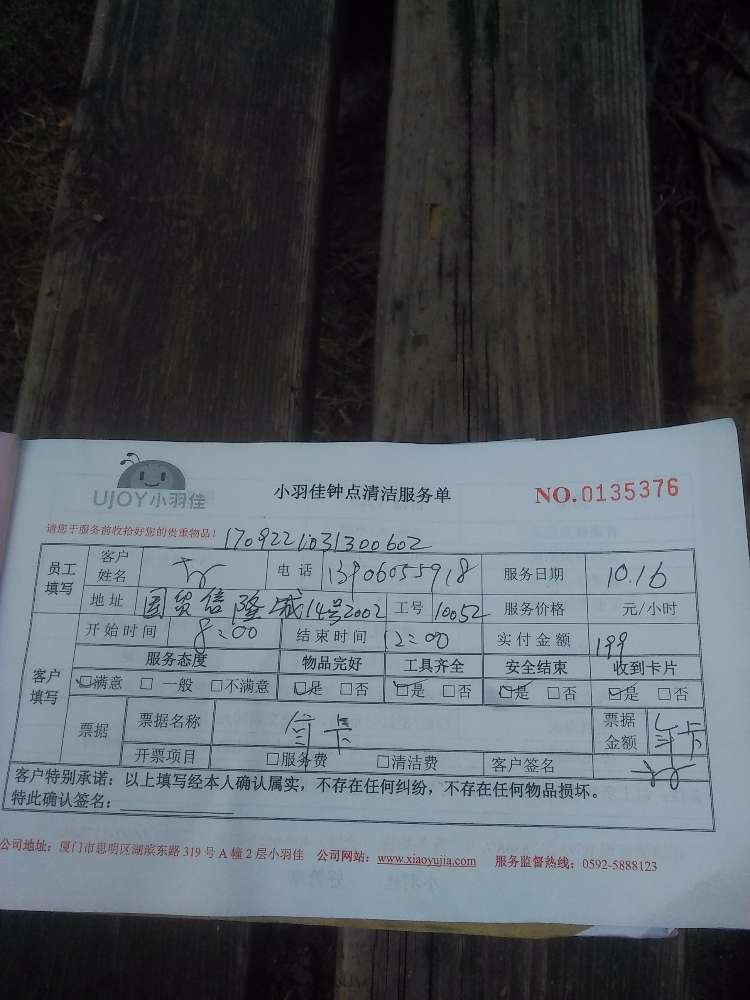 UJOY小羽佳
小羽佳钟点清洁服务单
NO.0135376
请您于服务前收拾好您的贵重物品！
1709221031300602
员工填写 客户姓名 电话 13906055918 服务日期 10.16
地址 国贸信隆城14号2002 工号 10052 服务价格 元/小时
客户填写 开始时间 8:00 结束时间 12:00 实付金额 199
服务态度 物品完好 工具齐全 安全结束 收到卡片
☑满意 □一般 □不满意 ☑是 □否 ☑是 □否 ☑是 □否 ☑是 □否
票据 票据名称 年卡 票据金额 年卡
开票项目 □服务费 □清洁费 客户签名
客户特别承诺：以上填写经本人确认属实，不存在任何纠纷，不存在任何物品损坏。
特此确认签名：
公司地址：厦门市思明区湖滨东路319号A幢2层小羽佳 公司网站：www.xiaoyujia.com 服务监督热线：0592-5888123